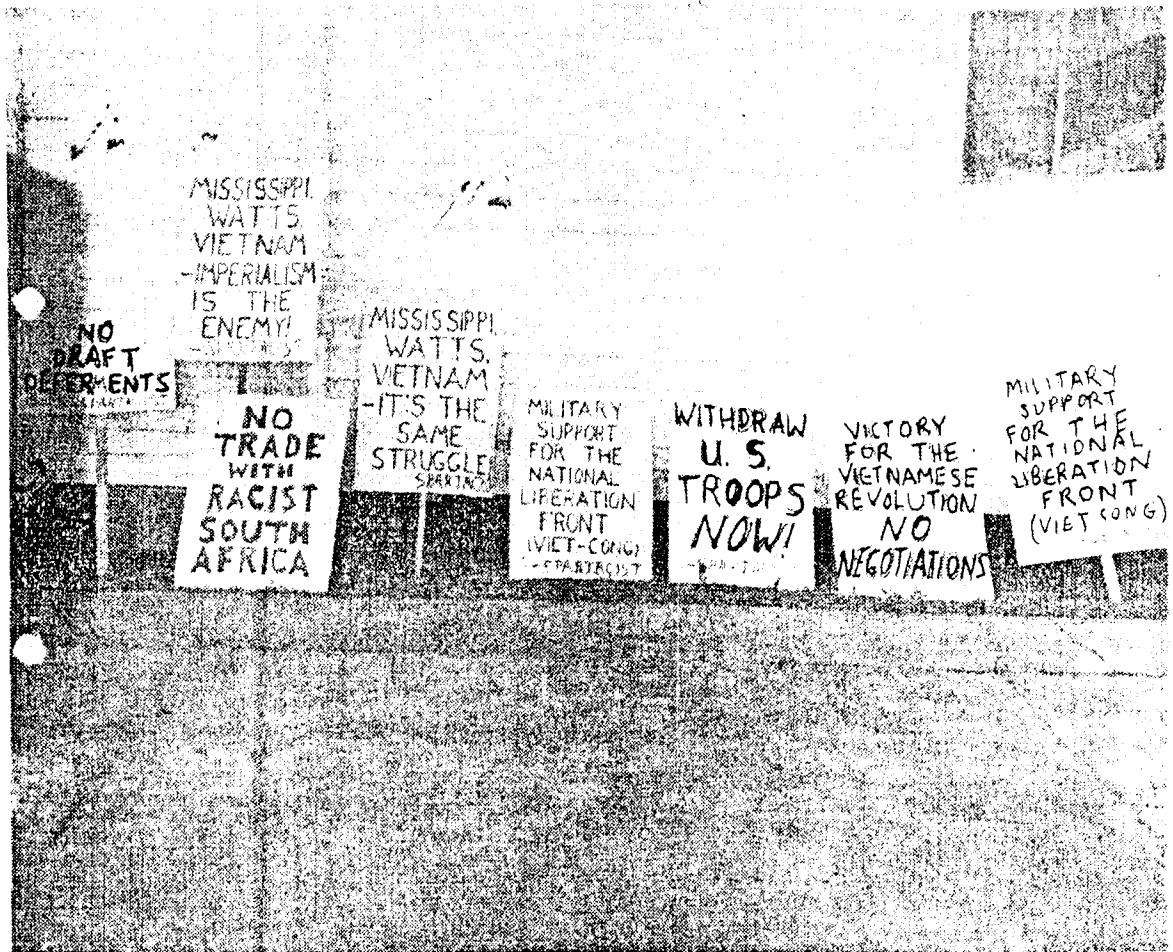 NO
DRAFT
DEFERMENTS
MISSISSIPPI,
WATTS,
VIETNAM
-IMPERIALISM
IS THE
ENEMY!
NO
TRADE
WITH
RACIST
SOUTH
AFRICA
MISSISSIPPI,
WATTS,
VIETNAM
-IT'S THE
SAME
STRUGGLE
MILITARY
SUPPORT
FOR THE
NATIONAL
LIBERATION
FRONT
(VIET-CONG)
-SPARTACIST
WITHDRAW
U. S.
TROOPS
NOW!
VICTORY
FOR THE
VIETNAMESE
REVOLUTION
NO
NEGOTIATIONS
MILITARY
SUPPORT
FOR THE
NATIONAL
LIBERATION
FRONT
(VIET CONG)